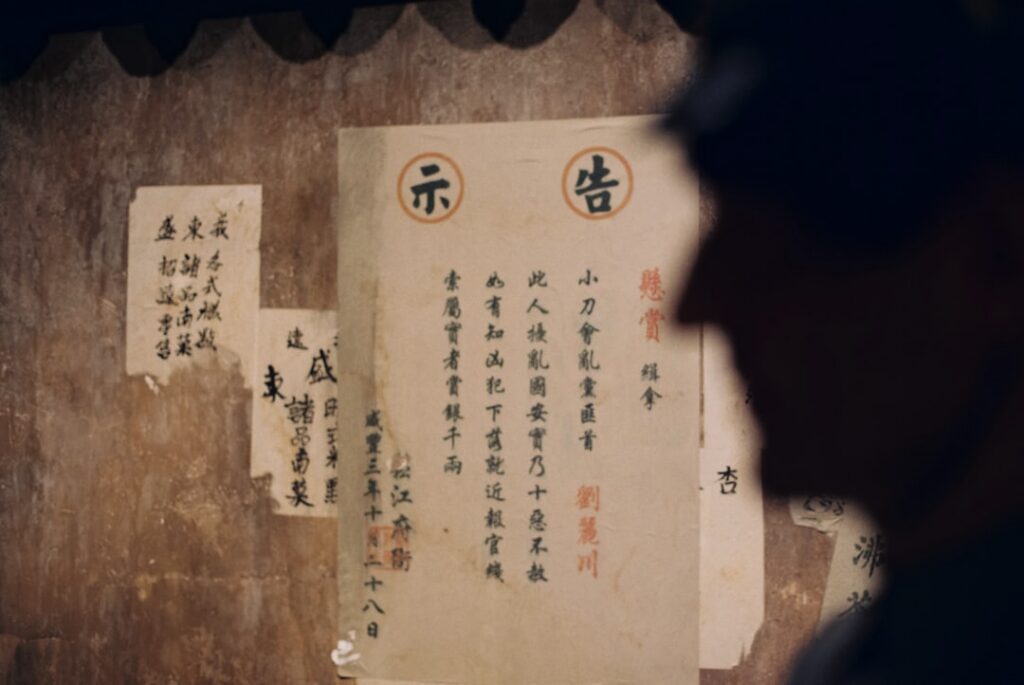 告示
懸賞 緝拿
小刀會亂黨匪首 劉麗川
此人擾亂國安實乃十惡不赦
如有知凶犯下落就近報官綫
索屬實者賞銀千兩
松江府衙
咸豐三年十月二十八日
各式
東 諸品南菓
盛
遠
盛
東 諸品南菓
杏